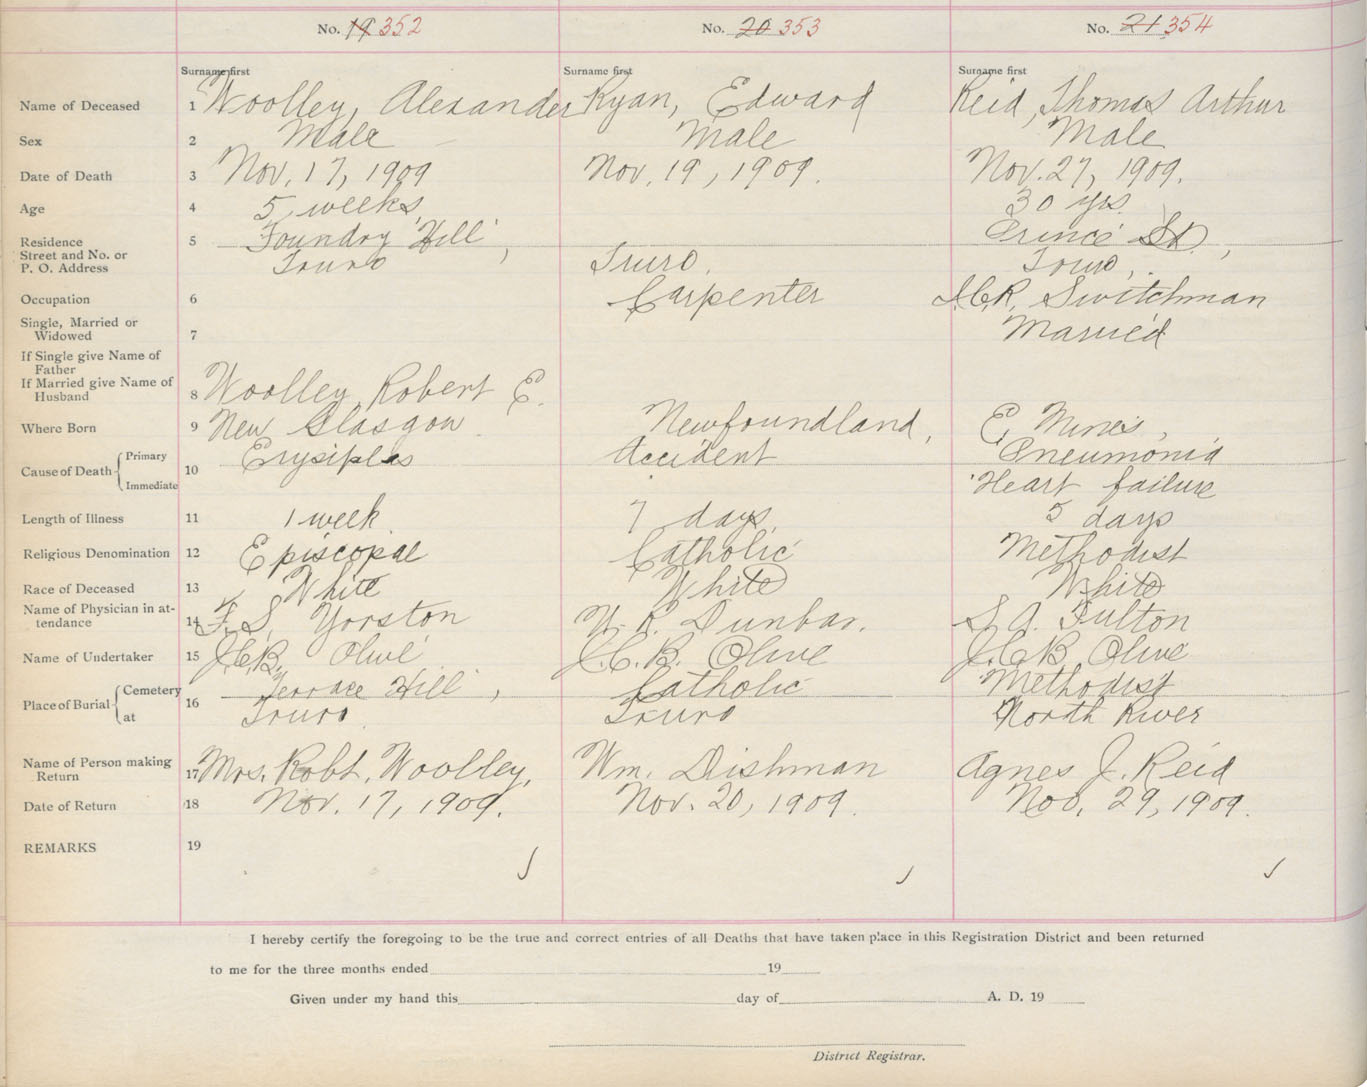 No. 19 352 No. 20 353 No. 21 354
Surname first Surname first Surname first
Name of Deceased 1 Woolley, Alexander Ryan, Edward Reid, Thomas Arthur
Sex 2 Male Male Male
Date of Death 3 Nov. 17, 1909 Nov. 19, 1909. Nov. 27, 1909.
Age 4 5 weeks 30 yrs.
Residence 5 Foundry Hill, Prince St.,
Street and No. or
P. O. Address Truro Truro. Truro,
Occupation 6 Carpenter I.C.R. Switchman
Single, Married or
Widowed 7 Married
If Single give Name of
Father
If Married give Name of
Husband 8 Woolley, Robert E.
Where Born 9 New Glasgow Newfoundland, E. Mines,
Cause of Death Primary 10 Erysiplas Accident Pneumonia
Immediate Heart failure
Length of Illness 11 1 week 7 days, 5 days
Religious Denomination 12 Episcopal Catholic Methodist
Race of Deceased 13 White White White
Name of Physician in at-
tendance 14 F. S. Yorston W. R. Dunbar. S. A. Fulton
Name of Undertaker 15 J.C.B. Olive J.C.B. Olive J.C.B. Olive
Place of Burial Cemetery 16 Terrace Hill, Catholic Methodist
at Truro Truro North River
Name of Person making
Return 17 Mrs. Robt. Woolley, Wm. Dishman Agnes J. Reid
Date of Return 18 Nov. 17, 1909. Nov. 20, 1909. Nov. 29, 1909.
REMARKS 19
I hereby certify the foregoing to be the true and correct entries of all Deaths that have taken place in this Registration District and been returned
to me for the three months ended 19
Given under my hand this day of A. D. 19
District Registrar.